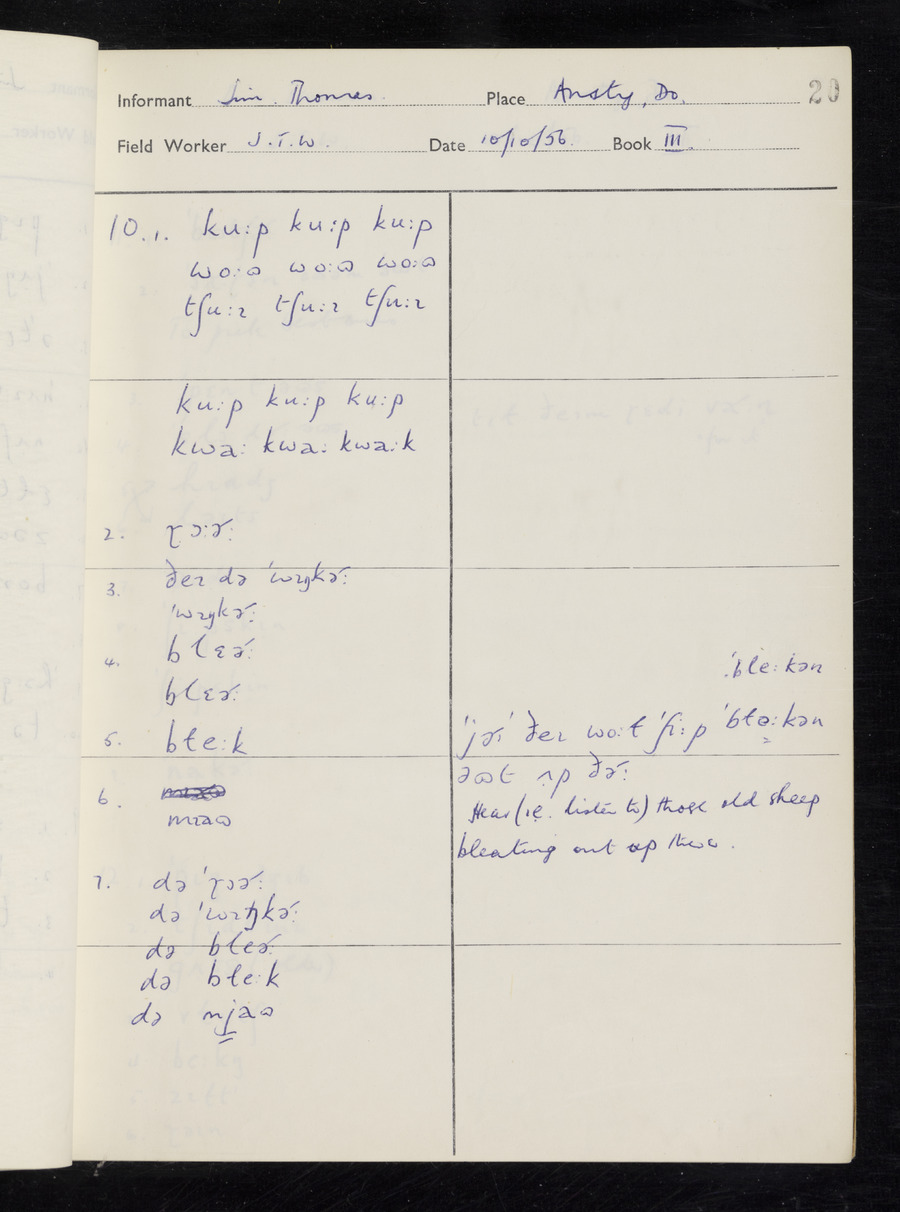 Informant Jim Thomas. Place Ansty, Do. 20
Field Worker J.T.W. Date 10/10/56. Book III.
10.1. ku:p ku:p ku:p
wo:ɷ wo:ɷ wo:ɷ
tʃu:ɪ tʃu:ɪ tʃu:ɪ
ku:p ku:p ku:p
kwa: kwa: kwa:k
2. ɽɔ:ɚ:
3. ðeɪ də 'wɪŋkɚ:
'wɪŋkɚ:
4. blɛɚ:
blɛɚ:
5. ble:k
6.
mɪaɷ
7. də 'ɽɔɚ:
də 'wɪŋkɚ:
də bleɚ:
də ble:k
də mjaɷ
'ble:kən
'jɚ: ðeɪ wo:t 'ʃi:p 'blə:kən
əɷt ʌp ðɚ:
Hear (ie. listen to) those old sheep
bleating out up there.